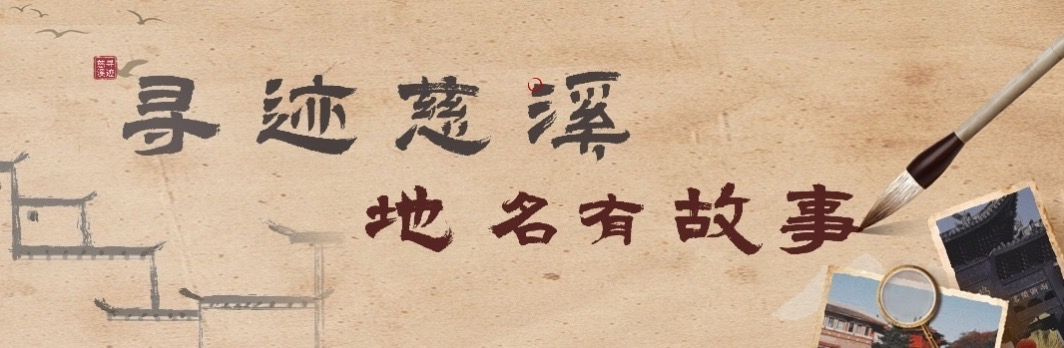 寻迹慈溪
地名有故事